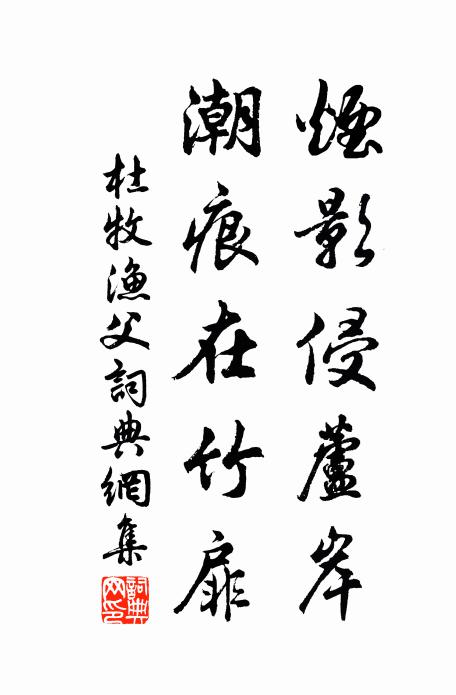 煙影侵蘆岸
潮痕在竹扉
杜牧漁父詞典網集
詞典網印